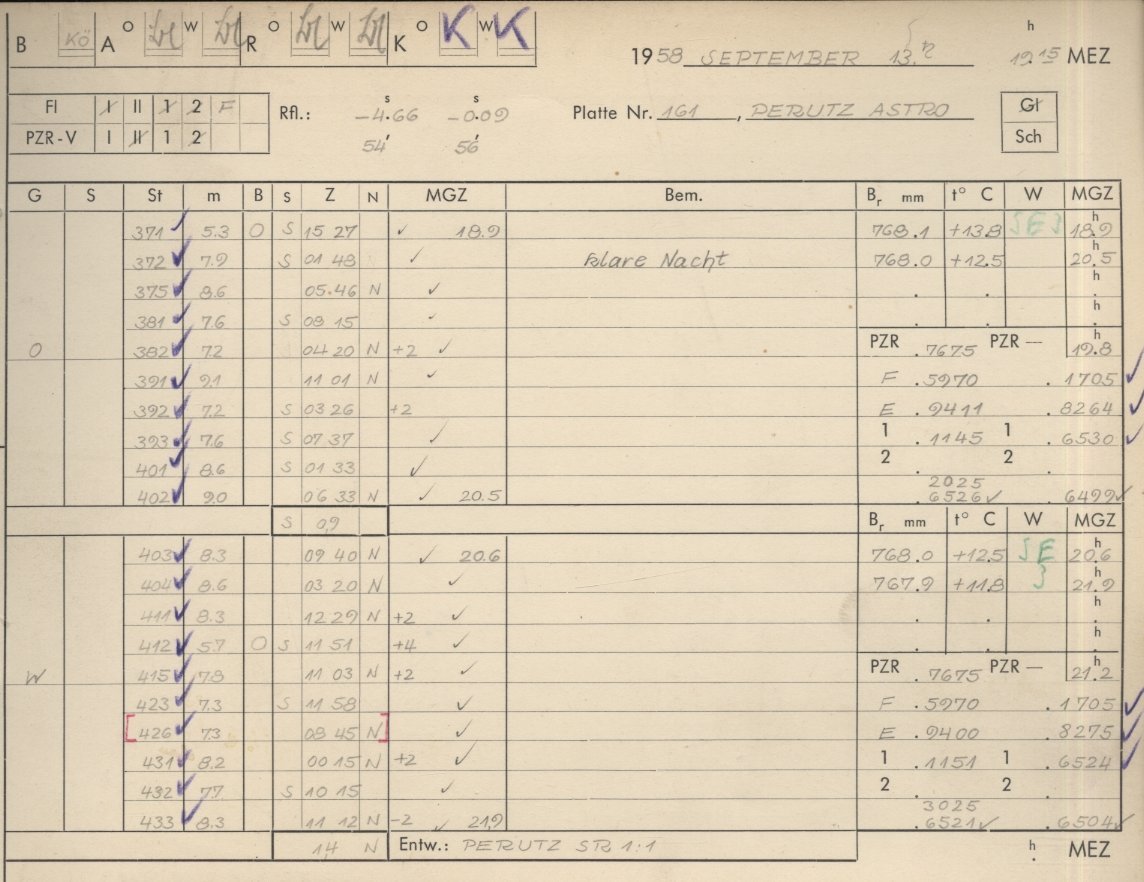 B Kö A O W R O W K O K W K
1958 SEPTEMBER 13. h 19.15 MEZ
FI I II 1 2 F
PZR-V I II 1 2
Rfl.: -4.66 s -0.09 s
54' 56'
Platte Nr. 161, PERUTZ ASTRO
Gl
Sch
G S St m B S Z N MGZ Bem. Br mm t° C W MGZ
371 5.3 O S 15 27 18.9 768.1 +13.8 h 18.9
372 7.9 S 01 48 klare Nacht 768.0 +12.5 h 20.5
375 8.6 05.46 N . . h .
381 7.6 S 08 15 . . h .
O 382 7.2 04 20 N +2 PZR .7675 PZR — h 19.8
391 9.1 11 01 N F .5970 .1705
392 7.2 S 03 26 +2 E .9411 .8264
393 7.6 S 07 37 1 .1145 1 .6530
401 8.6 S 01 33 2 . 2 .
402 9.0 06 33 N 20.5 2025 .6526 .6499
S 0,9 Br mm t° C W MGZ
403 8.3 09 40 N 20.6 768.0 +12.5 SE h 20.6
404 8.6 03 20 N 767.9 +11.8 S h 21.9
411 8.3 12 29 N +2 . . h .
412 5.7 O S 11 51 +4 . . h .
W 415 7.8 11 03 N +2 PZR .7675 PZR — h 21.2
423 7.3 S 11 58 F .5970 .1705
[426 7.3 08 45 N] E .9400 .8275
431 8.2 00 15 N +2 1 .1151 1 .6524
432 7.7 S 10 15 2 . 2 .
433 8.3 11 12 N -2 21,9 3025 .6521 .6504
1,4 N Entw.: PERUTZ SR 1:1 h . MEZ